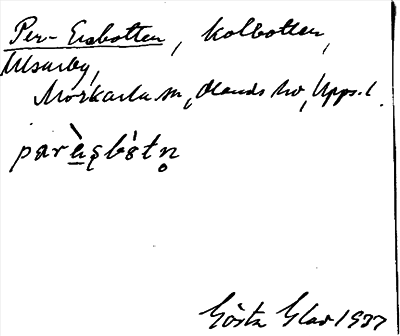 Per-Ersbotten, kolbotten,
Ulvarby,
Morkarla sn, Olands hd, Upps. l.
paràşbòtn̥
Gösta Glad 1937